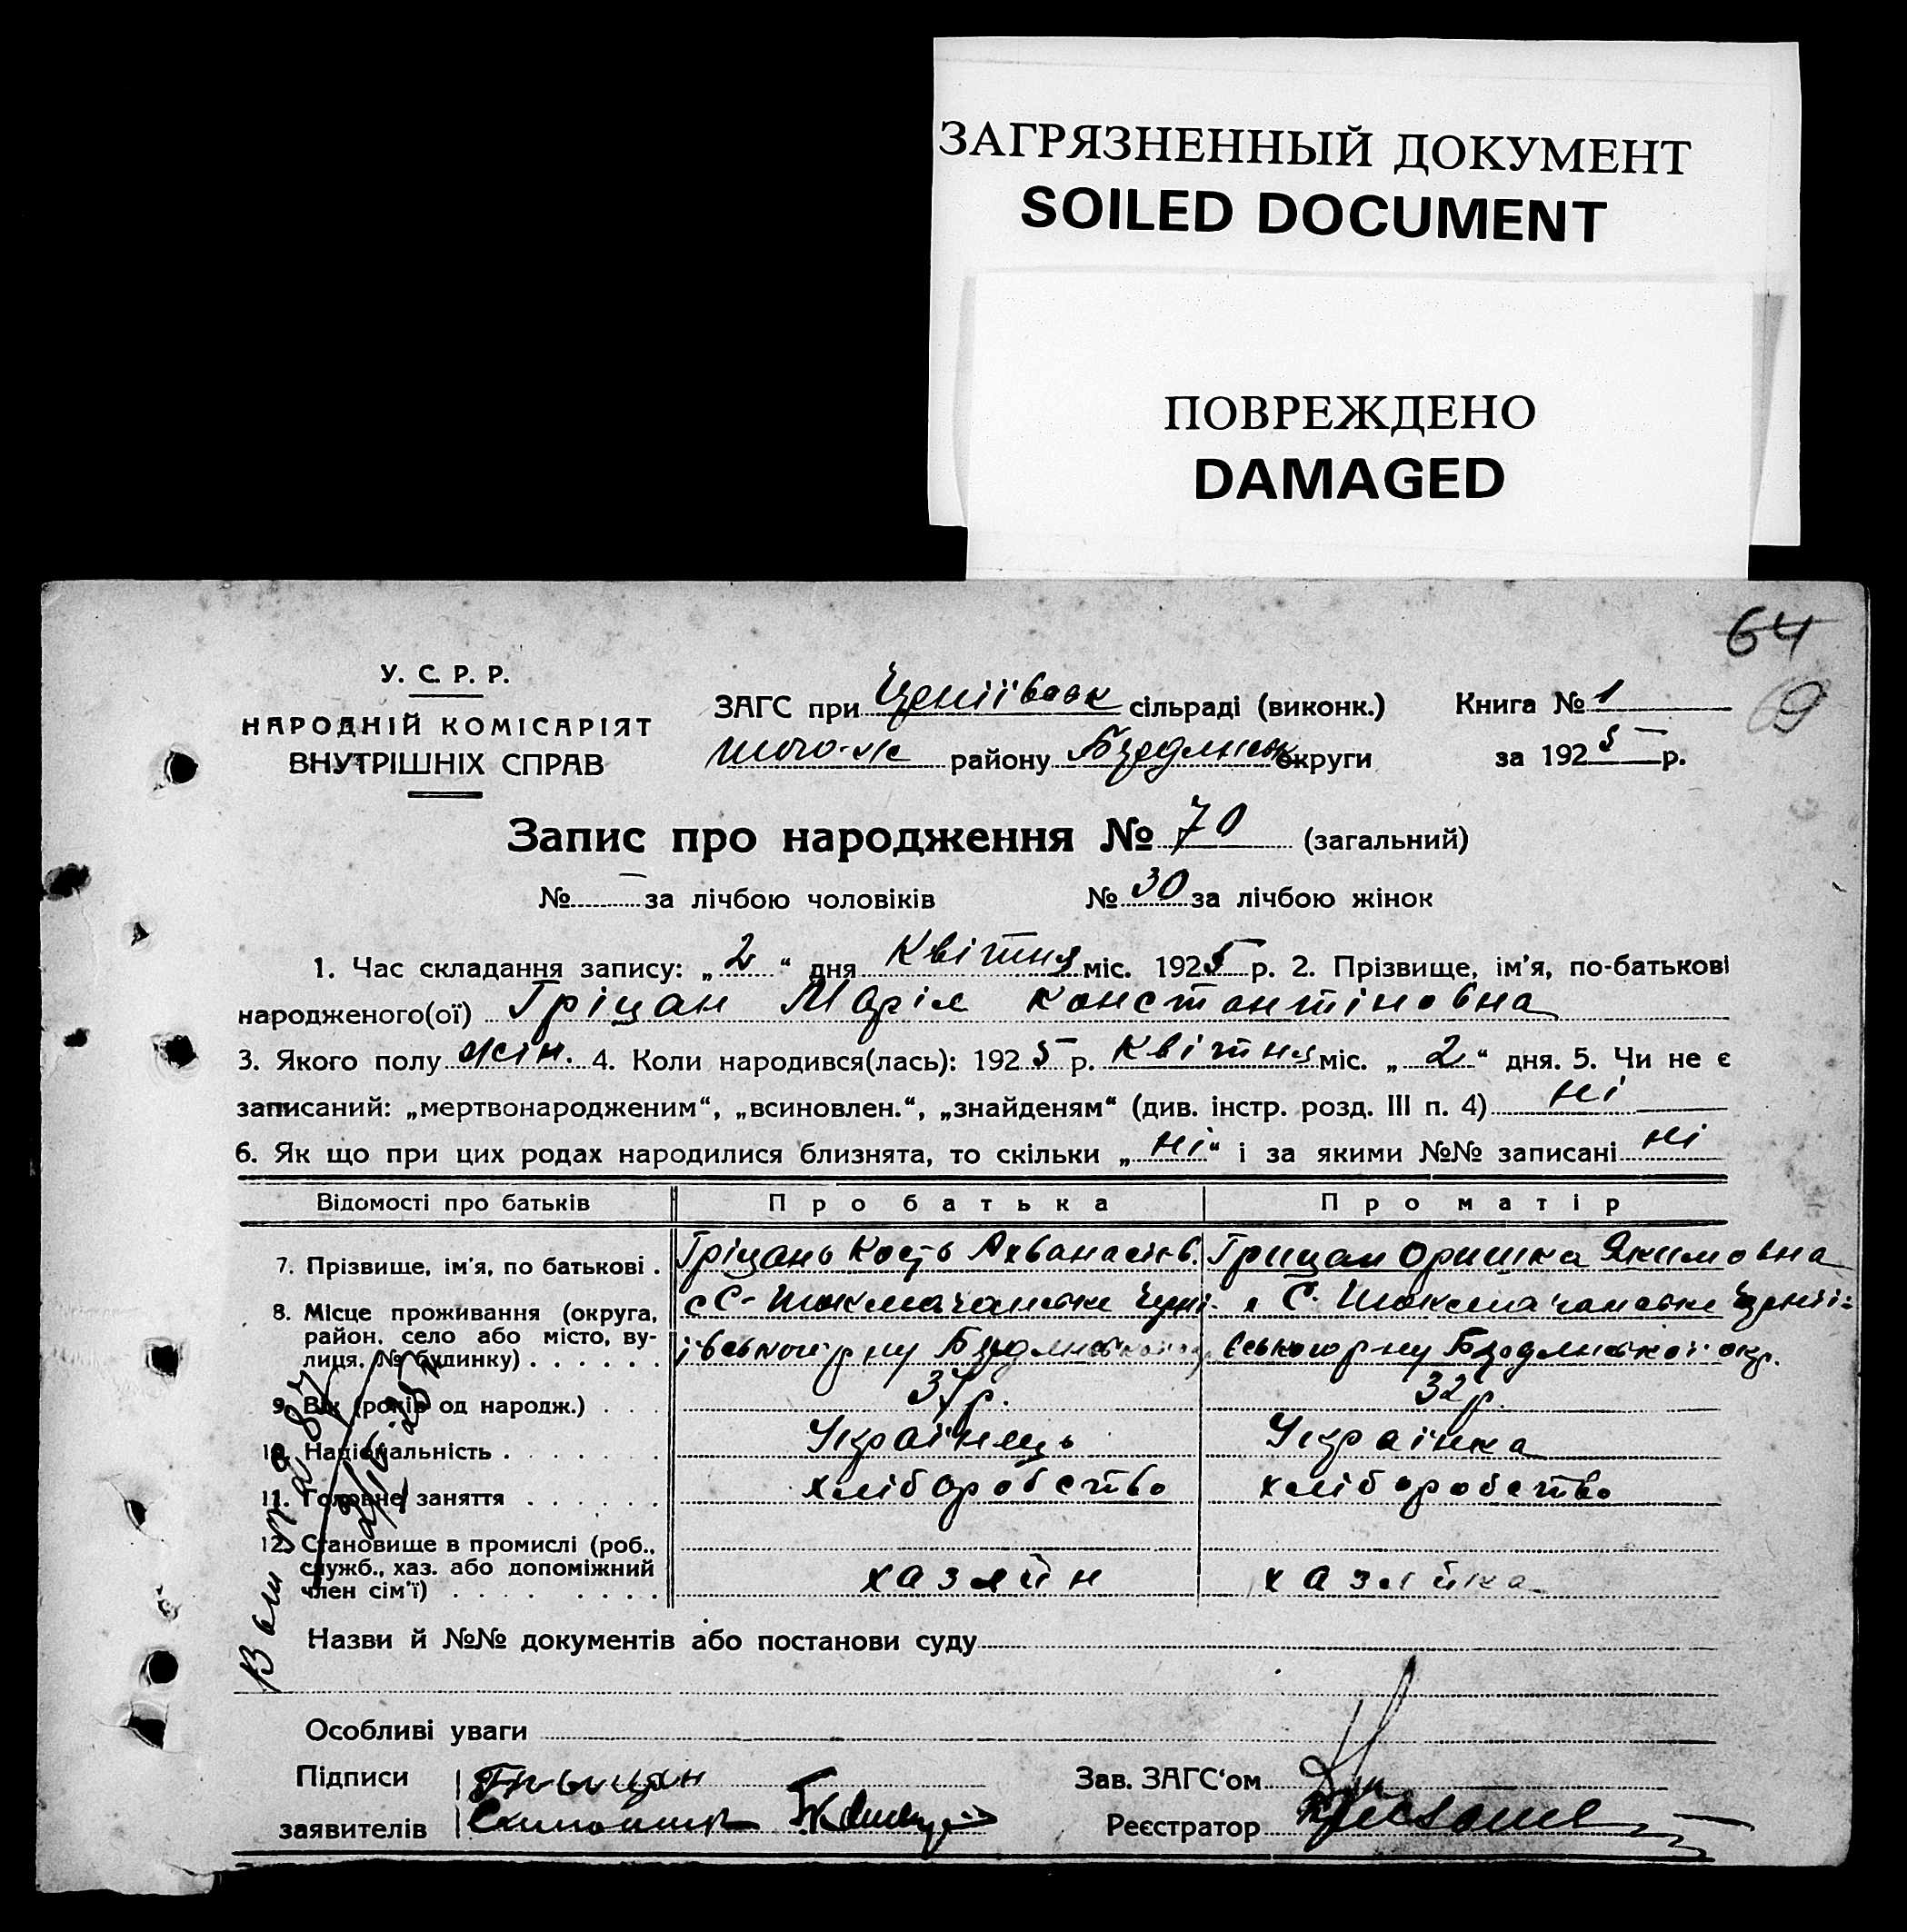 ЗАГРЯЗНЕННЫЙ ДОКУМЕНТ
SOILED DOCUMENT
ПОВРЕЖДЕНО
DAMAGED
64
69
У. С. Р. Р.
НАРОДНІЙ КОМІСАРІЯТ
ВНУТРІШНІХ СПРАВ
ЗАГС при сільраді (виконк.)
району округи
Книга № 1
за 1925 р.
Запис про народження № 70 (загальний)
№ — за лічбою чоловіків № 30 за лічбою жінок
1. Час складання запису: „2“ дня Квітня міс. 1925 р. 2. Прізвище, ім'я, по-батькові
народженого(ої) Гріцан Марія Константіновна
3. Якого полу жін. 4. Коли народився(лась): 1925 р. Квітня міс. „2“ дня. 5. Чи не є
записаний: „мертвонародженим“, „всиновлен.“, „знайденям“ (див. інстр. розд. III п. 4) ні
6. Як що при цих родах народилися близнята, то скільки „ні“ і за якими №№ записані ні
Відомості про батьків Про батька Про матір
7. Прізвище, ім'я, по батькові . Гріцань Кость Ахванасіїв. Грицан Оришка Якимовна
8. Місце проживання (округа, район, село або місто, вулиця, № будинку) . . . . . .
9. Вік (років од народж.) . . . 37 р. 32 р.
10. Національність . . . . . . . Українець Українка
11. Головне заняття . . . . . . хліборобство хліборобство
12. Становище в промислі (роб.,
служб., хаз. або допоміжний
член сім'ї) . . . . . . . . хазяйн хазяйка
Назви й №№ документів або постанови суду
Особливі уваги
Підписи
заявителів
Зав. ЗАГС'ом
Реєстратор